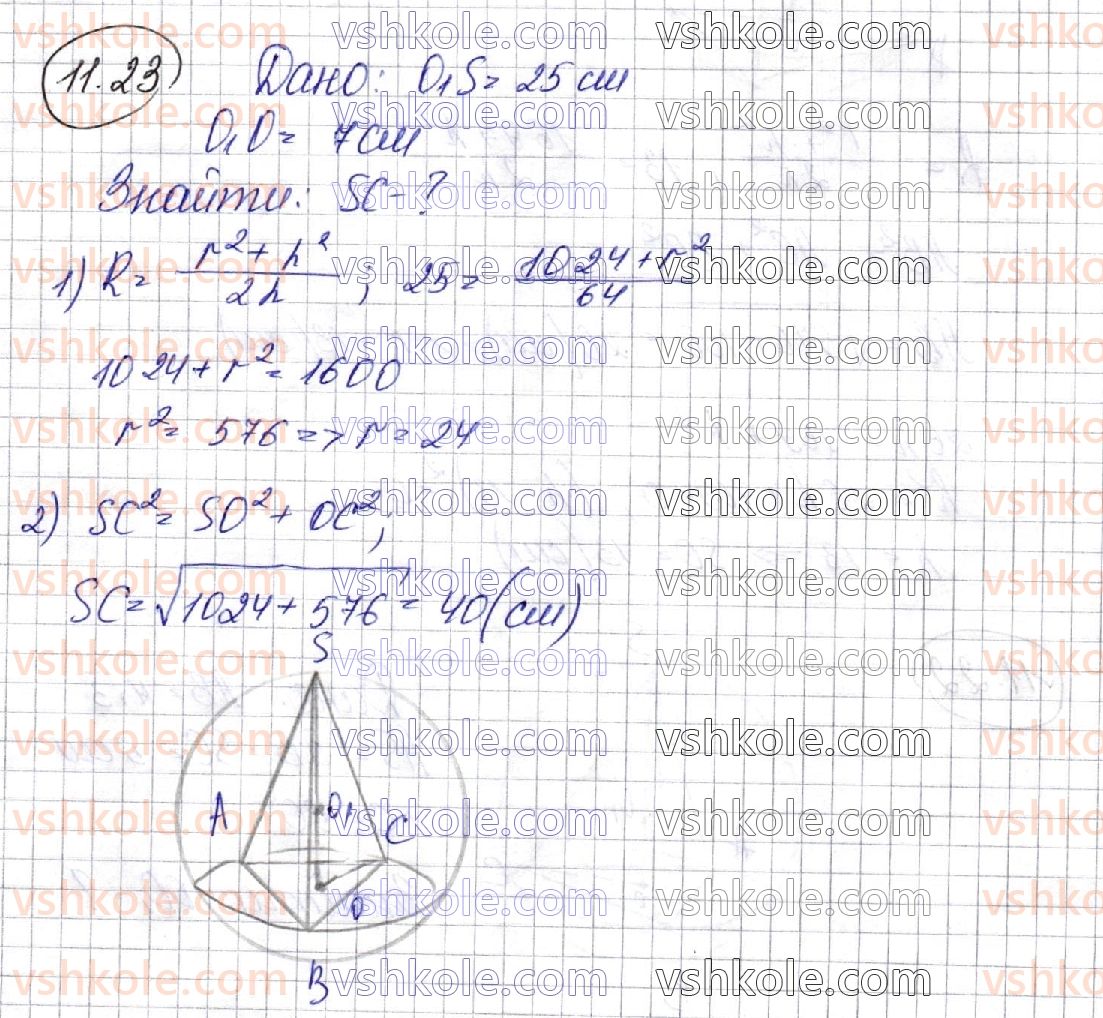 11.23 Дано: O₁S = 25 см
O₁O = 7 см
Знайти: SC - ?
1) R = (r² + h²) / 2h ; 25 = (1024 + r²) / 64
1024 + r² = 1600
r² = 576 => r = 24
2) SC² = SO² + OC²;
SC = √(1024 + 576) = 40 (см)
S
A O₁ C
O
B
vshkole.com